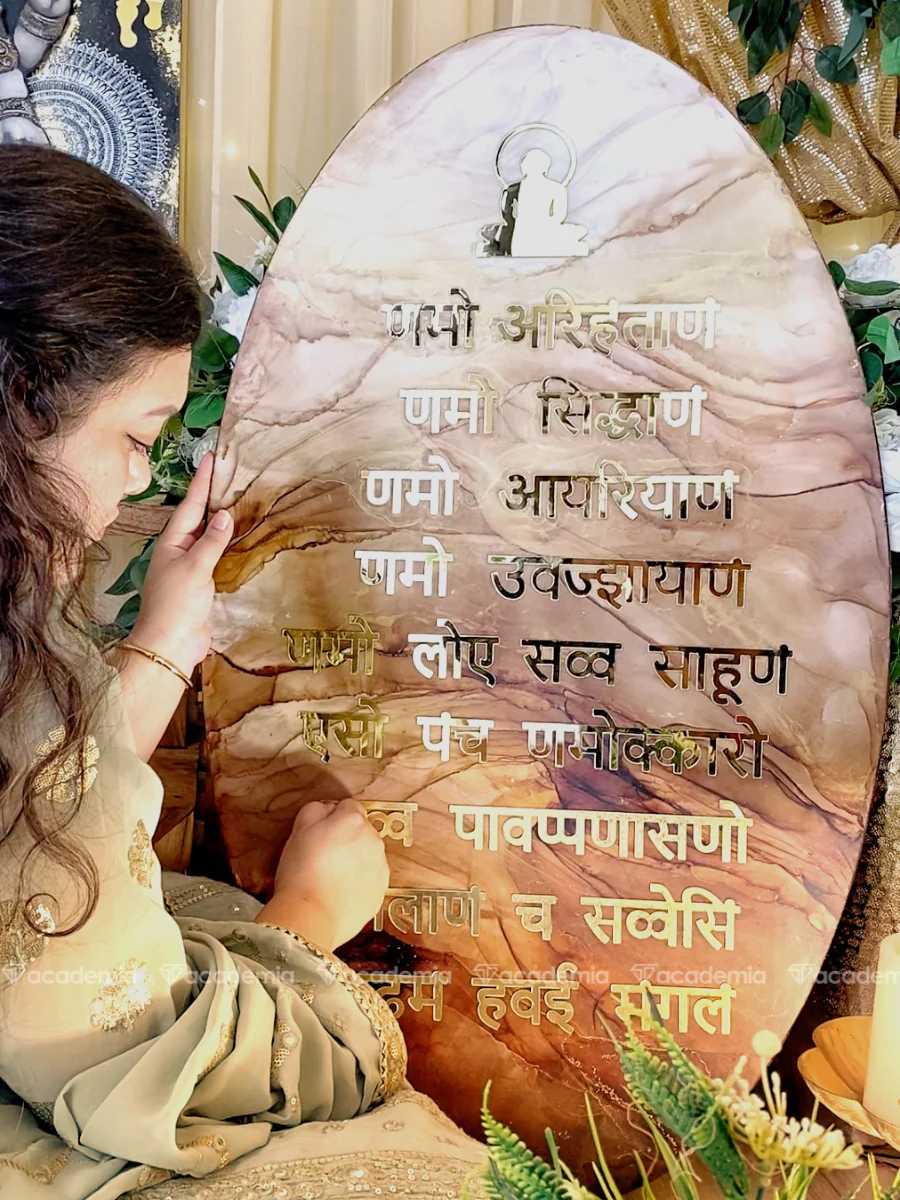 णमो अरिहंताणं
णमो सिद्धाणं
णमो आयरियाणं
णमो उवज्झायाणं
णमो लोए सव्व साहूणं
एसो पंच णमोक्कारो
पावप्पणासणो
च सव्वेसिं
हवई मंगलं
academia academia academia academia academia academia